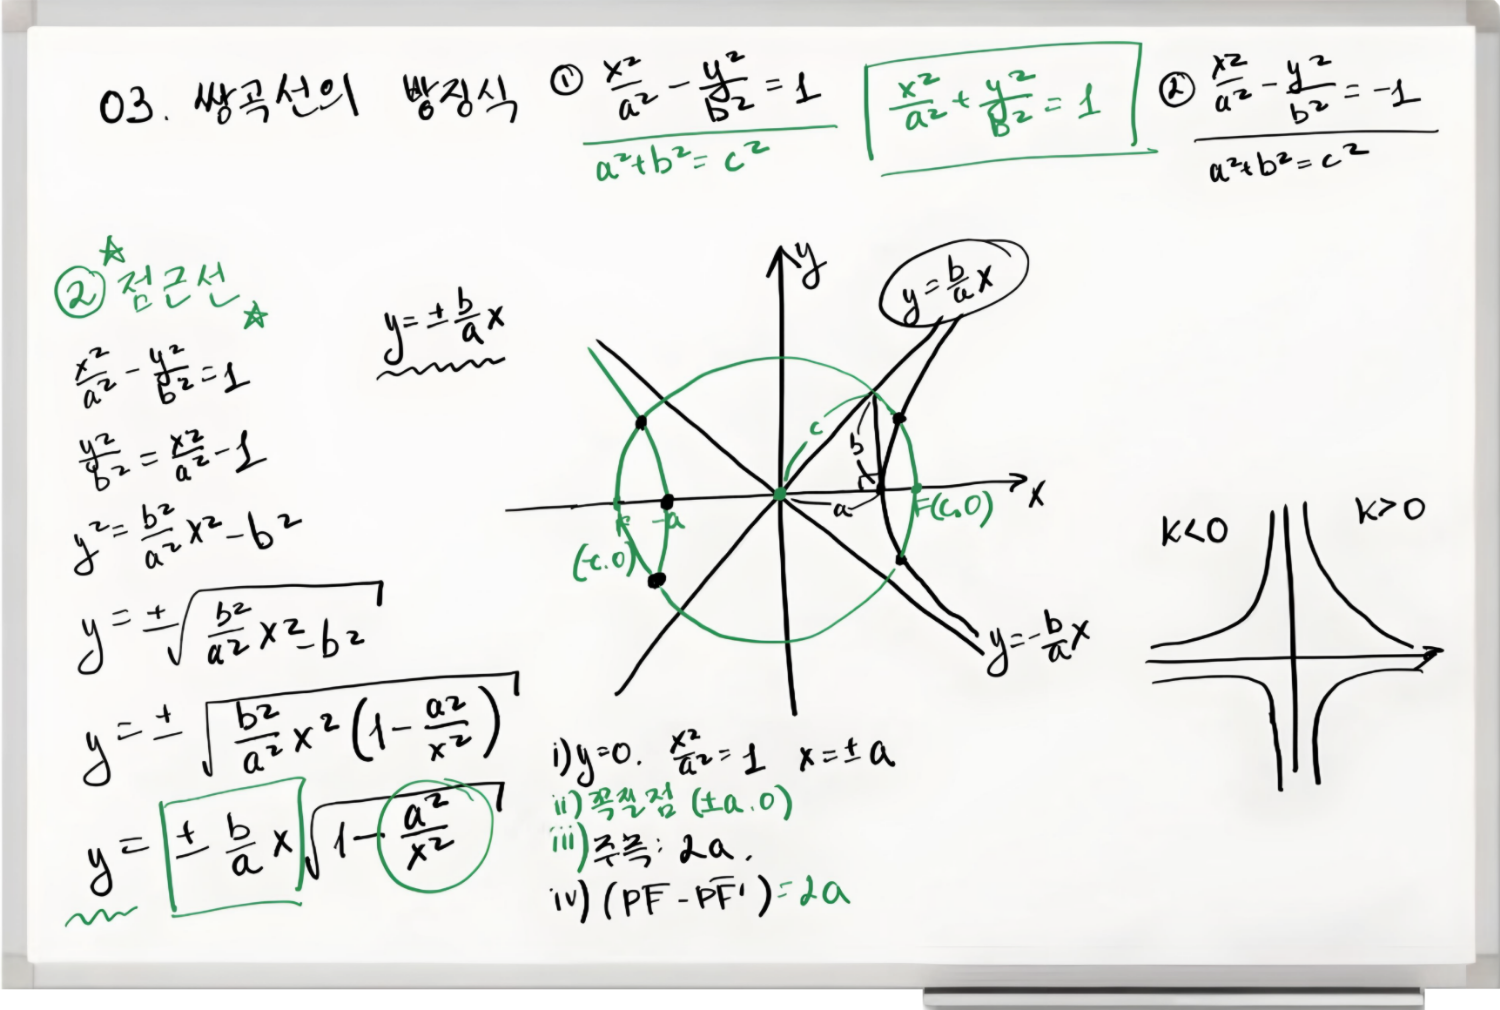 03. 쌍곡선의 방정식 ① x²/a² - y²/b² = 1
a²+b²= c²
x²/a² + y²/b² = 1
② x²/a² - y²/b² = -1
a²+b²= c²
☆
② 점근선
☆
x²/a² - y²/b² = 1
y²/b² = x²/a² - 1
y² = b²/a² x² - b²
y = ±√(b²/a² x² - b²)
y = ±√(b²/a² x² (1 - a²/x²))
y = ± b/a x √(1 - a²/x²)
y = ± b/a x
y
y = b/a x
c
b
a
x
F(c,0)
-a
F'
(-c,0)
y = -b/a x
i) y=0. x²/a² = 1 x = ±a
ii) 꼭짓점 (±a.0)
iii) 주축: 2a.
iv) (PF - PF') = 2a
k<0
k>0